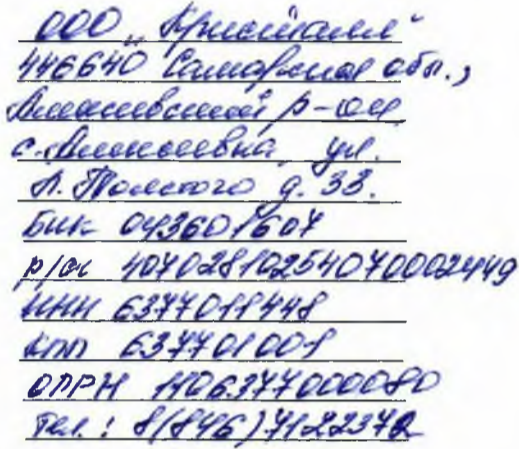 ООО "Кристалл"
446640 Самарская обл.,
Алексеевский р-он
с. Алексеевка, ул.
Л. Толстого д. 33.
БИК 043601607
р/сч 40702810254070002449
ИНН 6377011448
КПП 637701001
ОГРН 1106377000080
тел.: 8(846)7122372